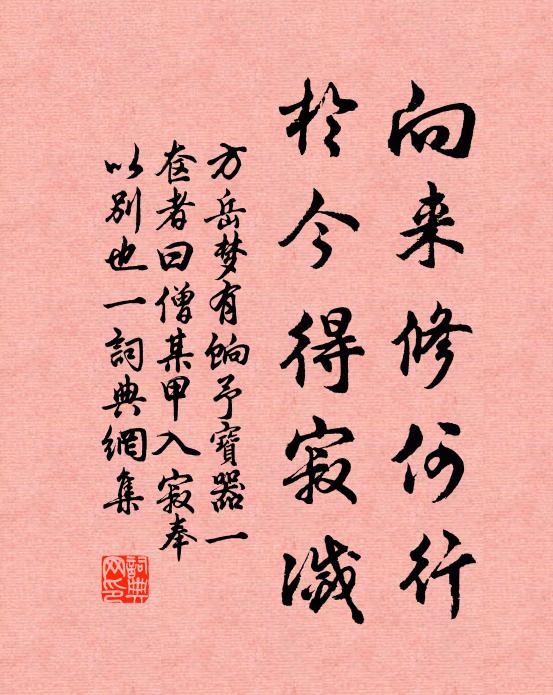 向来修何行
於今得寂滅
方岳梦有餉予寶器一
奁者曰僧某甲入寂奉
以别也一詞典網集
詞典
网印